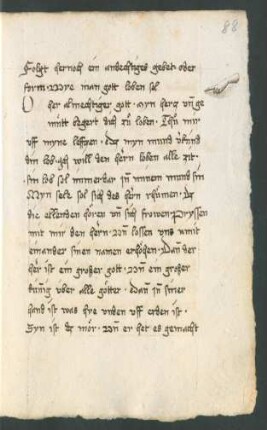 88
Folgt hernoch ein andechtiges gebet oder
form Wye man gott loben sol
O her almechtiger gott. Myn hertz vnd ge
mütt begert dich zu loben. Thu mir
uff myne lefftzen. das myn mund verkünd
din lob. Ich will den hern loben alle zit.
sin lob sol immerdar in minem mund sin
Myn sele sol sich des hern rhümen. Das
die ellenden hören vnd sich fröwen Pryssen
mit mir den hern. vnd lossen vns mit
einander sinen namen erhöhen. Dan der
her ist ein grosser gott. vnd ein grosser
künig uber alle götter. Dan in siner
hand ist was hye unden uff erden ist.
Syn ist das mör. dan er het es gemacht